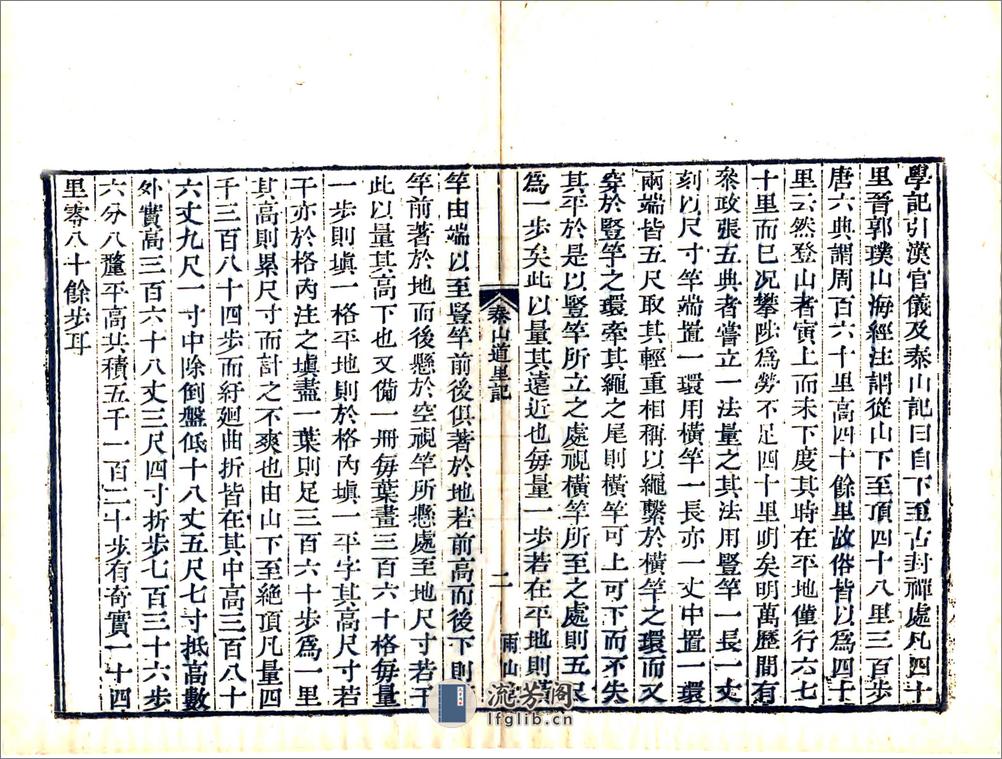 學記引漢官儀及泰山記曰自下至古封禪處凡四十
里晉郭璞山海經注謂從山下至頂四十八里三百步
唐六典謂周百六十里高四十餘里故俗皆以爲四十
里云然登山者寅上而未下度其時在平地僅行六七
十里而已况攀陟爲勞不足四十里明矣明萬歷間有
叅政張五典者嘗立一法量之其法用豎竿一長一丈
刻以尺寸竿端置一環用橫竿一長亦一丈中置一環
兩端皆五尺取其輕重相稱以繩繫於橫竿之環而又
穿於豎竿之環牽其繩之尾則橫竿可上可下而不失
其平於是以豎竿所立之處視橫竿所至之處則五尺
爲一步矣此以量其遠近也每量一步若在平地則
泰山道里記
二
雨山
竿由端以至豎竿前後俱著於地若前高而後下則
竿前著於地而後懸於空視竿所懸處至地尺寸若干
此以量其高下也又備一冊每葉畫三百六十格每量
一步則塡一格平地則於格內塡一平字其高尺寸若
干亦於格內注之塡盡一葉則足三百六十步爲一里
其高則累尺寸而計之不爽也由山下至絕頂凡量四
千三百八十四步而紆廻曲折皆在其中高三百八十
六丈九尺一寸中除倒盤低十八丈五尺七寸抵高數
外實高三百六十八丈三尺四寸折步七百三十六步
六分八釐平高共積五千一百二十步有奇實一十四
里零八十餘步耳
流芳閣
lfglib.cn